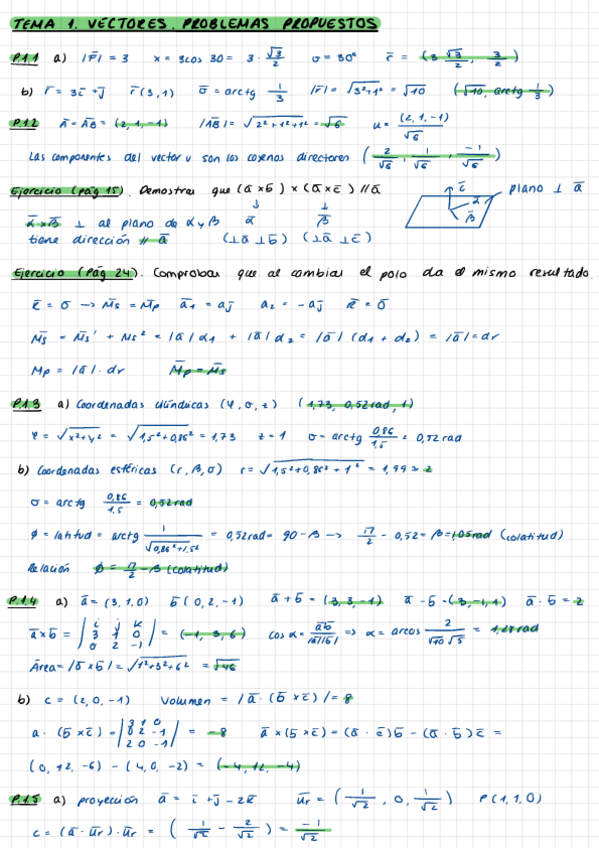 TEMA 1. VECTORES. PROBLEMAS PROPUESTOS
P.1.1 a) |r̄| = 3 x = 3cos 30 = 3 · √3/2 σ = 30° r̄ = (3 √3/2, 3/2)
b) r̄ = 3ī + j̄ r̄ (3,1) σ̄ = arctg 1/3 |r̄| = √(3²+1²) = √10 (√10, arctg 1/3)
P.1.2 Ā = ĀB̄ = (2,1,-1) |ĀB̄| = √(2²+1²+1²) = √6 u = (2,1,-1)/√6
Las componentes del vector u son los cosenos directores (2/√6, 1/√6, -1/√6)
Ejercicio (pág 15). Demostrar que (ā × b̄) × (ā × c̄) // ā
c̄ plano ⊥ ā
↓ ↓
ᾱ × β̄ ⊥ al plano de α y β ᾱ β̄
ᾱ β̄
tiene dirección // ā (⊥ā ⊥b̄) (⊥ā ⊥c̄)
Ejercicio (pág 24). Comprobar que al cambiar el polo da el mismo resultado.
R̄ = σ̄ → M̄s = M̄p ā₁ = aj̄ a₂ = -aj̄ R̄ = σ̄
M̄s = M̄s' + Ms² = |ā| d₁ + |ā| d₂ = |ā| (d₁ + d₂) = |ā| = dr
Mp = |ā| · dr M̄p = M̄s
P.1.3 a) Coordenadas cilíndricas (φ, σ, z) (1,73, 0,52 rad, 1)
φ = √(x²+y²) = √(1,5²+0,86²) = 1,73 z = 1 σ = arctg 0,86/1,5 = 0,52 rad
b) Coordenadas esféricas (r, β, σ) r = √(1,5²+0,86²+1²) = 1,99 ≈ 2
σ = arctg 0,86/1,5 = 0,52 rad
ϕ = latitud = arctg 1/√(0,86²+1,5²) = 0,52 rad = 90 - β → π/2 - 0,52 = β = 1,05 rad (colatitud)
Relación ϕ = π/2 - β (colatitud)
P.1.4 a) ā = (3,1,0) b̄ (0,2,-1) ā + b̄ = (3,3,-1) ā - b̄ = (3,-1,1) ā · b̄ = 2
ā × b̄ = | i j k ; 3 1 0 ; 0 2 -1 | = (-1, 3, 6) cos α = āb̄/|ā||b̄| => α = arcos 2/(√10 √5) = 1,28 rad
Área = |ā × b̄| = √(1²+3²+6²) = √46
b) c = (2,0,-1) Volumen = |ā · (b̄ × c̄)| = 8
a · (b̄ × c̄) = | 3 1 0 ; 0 2 -1 ; 2 0 -1 | = -8 ā × (b̄ × c̄) = (ā · c̄) b̄ - (ā · b̄) c̄ =
(0, 12, -6) - (4, 0, -2) = (-4, 12, -4)
P.1.5 a) proyección ā = ī + j̄ - 2k̄ ūr = (1/√2, 0, 1/√2) P(1,1,0)
c = (ā · ūr) · ūr = (1/√2 - 2/√2) = -1/√2